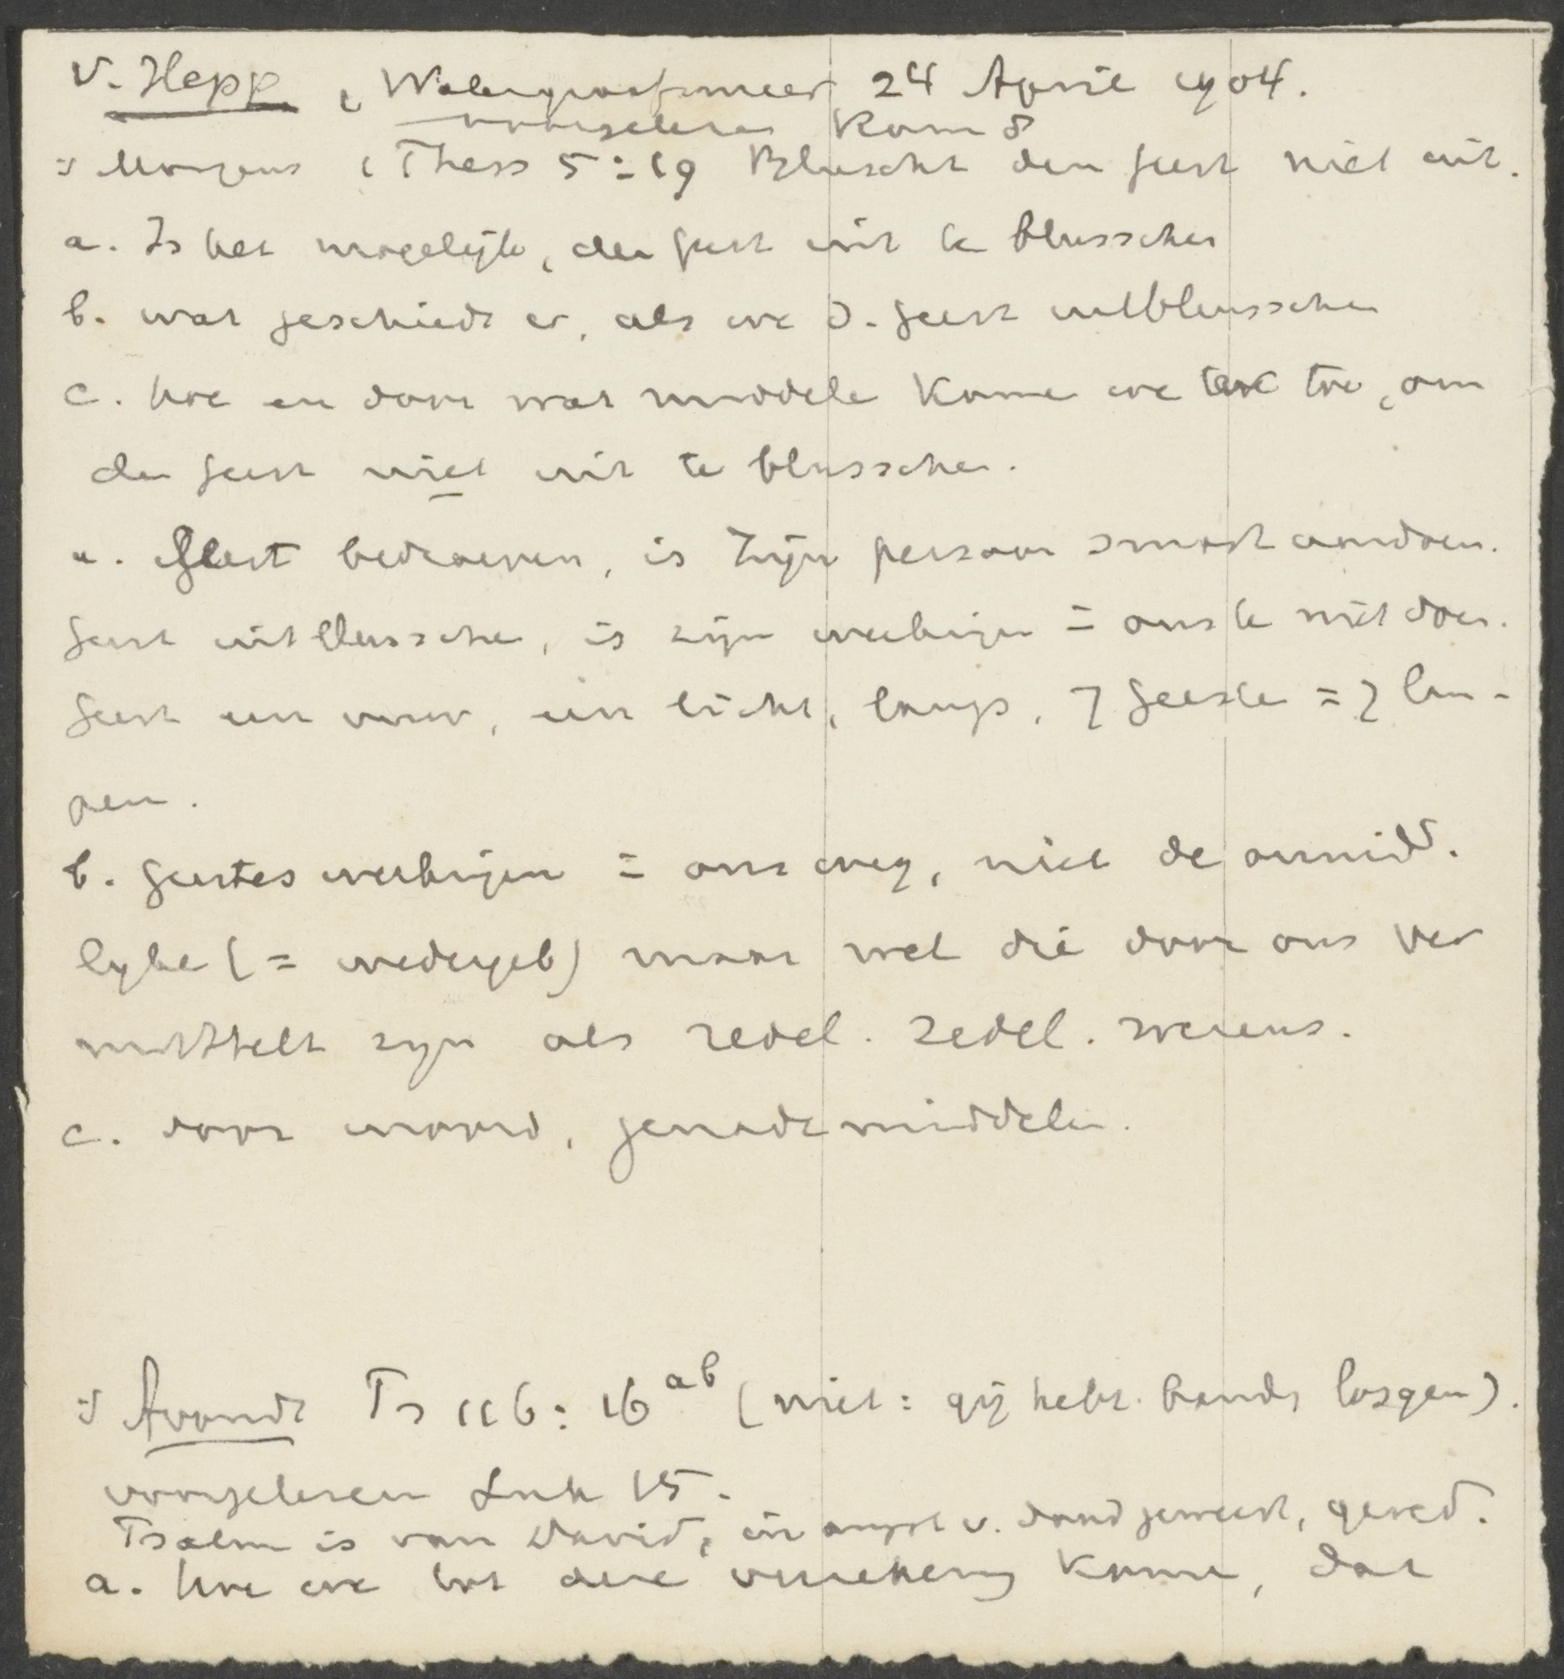 V. Hepp, Watergraafsmeer 24 April 1904.
voorgelezen Rom 8
's Morgens 1 Thess 5:19 Bluscht den geest niet uit.
a. Is het mogelijk, den geest uit te blusschen
b. wat geschiedt er, als we d. geest uitblusschen
c. hoe en door wat middele kome we er toe, om
den geest niet uit te blusschen.
a. Geest bedroeven, is Zijn persoon smart aandoen.
geest uitblussche, is zijn werkinge in ons te niet doen.
geest een vuur, een licht, lamp, 7 geeste = 7 lam-
pen.
b. geestes werkingen in ons weg, niet de onmidd.
lyke (= wedergeb) maar wel die door ons ver
middelt zyn als redel. zedel. wezens.
c. door woord, genademiddelen.
's Avonds Ps 116:16 ab (niet: gij hebt. bands losgem).
voorgelezen Luk 15.
Psalm is van David, in angst v. dood geweest, gered.
a. hoe we tot deze verzekering kome, dat